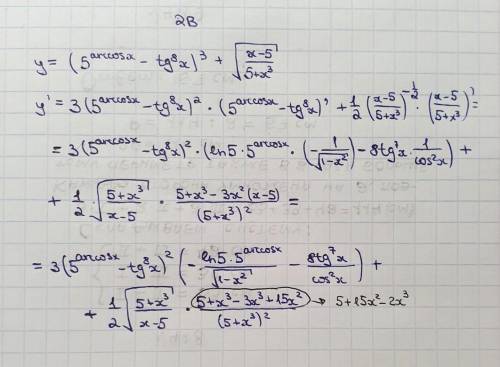 2В
y = (5^arccosx - tg⁸x)³ + √((x-5)/(5+x³))
y' = 3(5^arccosx - tg⁸x)² · (5^arccosx - tg⁸x)' + 1/2 ((x-5)/(5+x³))^(-1/2) · ((x-5)/(5+x³))' =
= 3(5^arccosx - tg⁸x)² · (ln5 · 5^arccosx · (-1/√(1-x²)) - 8tg⁷x · 1/cos²x) +
+ 1/2 · √((5+x³)/(x-5)) · (5+x³-3x²(x-5))/(5+x³)² =
= 3(5^arccosx - tg⁸x)² (-(ln5 · 5^arccosx)/√(1-x²) - 8tg⁷x/cos²x) +
+ 1/2 √((5+x³)/(x-5)) · (5+x³-3x³+15x²)/(5+x³)² → 5+15x²-2x³